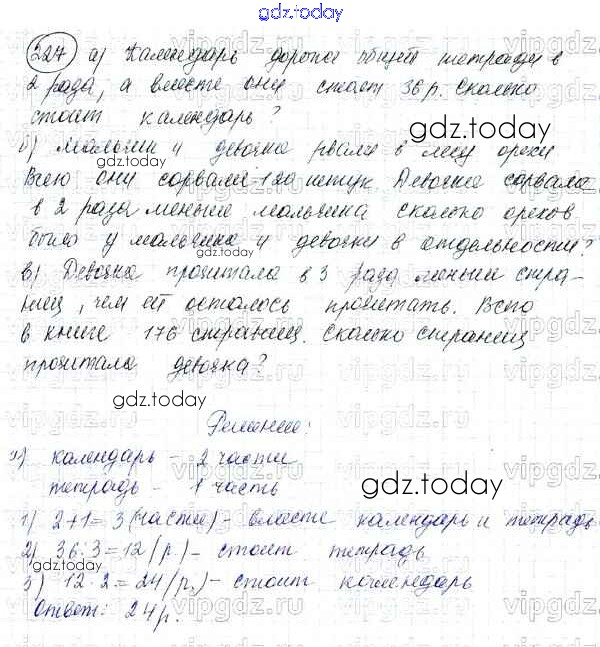 gdz.today
227 а) Календарь дороже общей тетради в
2 раза, а вместе они стоят 36 р. Сколько
стоит календарь?
gdz.today
б) Мальчик и девочка рвали в лесу орехи
Всего они сорвали 120 штук. Девочка сорвала
в 2 раза меньше мальчика Сколько орехов
было у мальчика и девочки в отдельности?
в) Девочка прочитала в 3 раза меньше стра-
ниц, чем ей осталось прочитать. Всего
в книге 176 страниц. Сколько страниц
прочитала девочка?
gdz.today
Решение:
а) календарь - 2 части
тетрадь - 1 часть
gdz.today
1) 2+1=3 (части) - вместе календарь и тетрадь
2) 36:3=12 (р.) - стоит тетрадь
3) 12·2=24 (р.) - стоит календарь
Ответ: 24 р.
gdz.today